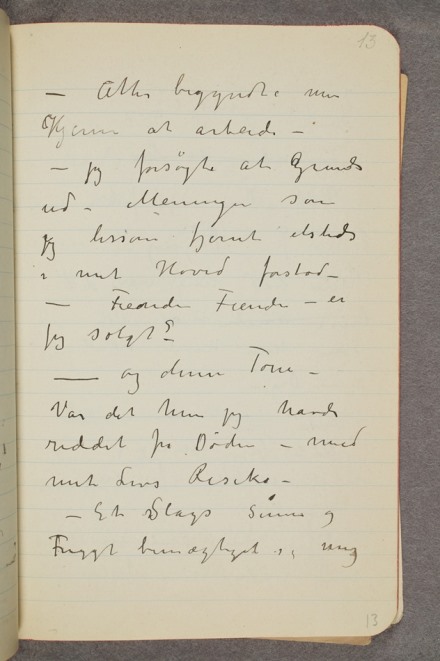 13
— Atter begyndte min
Hjerne at arbeide —
— jeg forsøgte at Grunde
ud — Meninger som
jeg lissom fjernt etsteds
i mit Hoved forstod —
— Fienden Fiende — er
jeg solgt?
— og denne Tone —
Var det hun jeg havde
reddet fra Døden — med
mit Livs Risiko —
— Et Slags Sinne og
Frygt bemægtiget sig mig
13